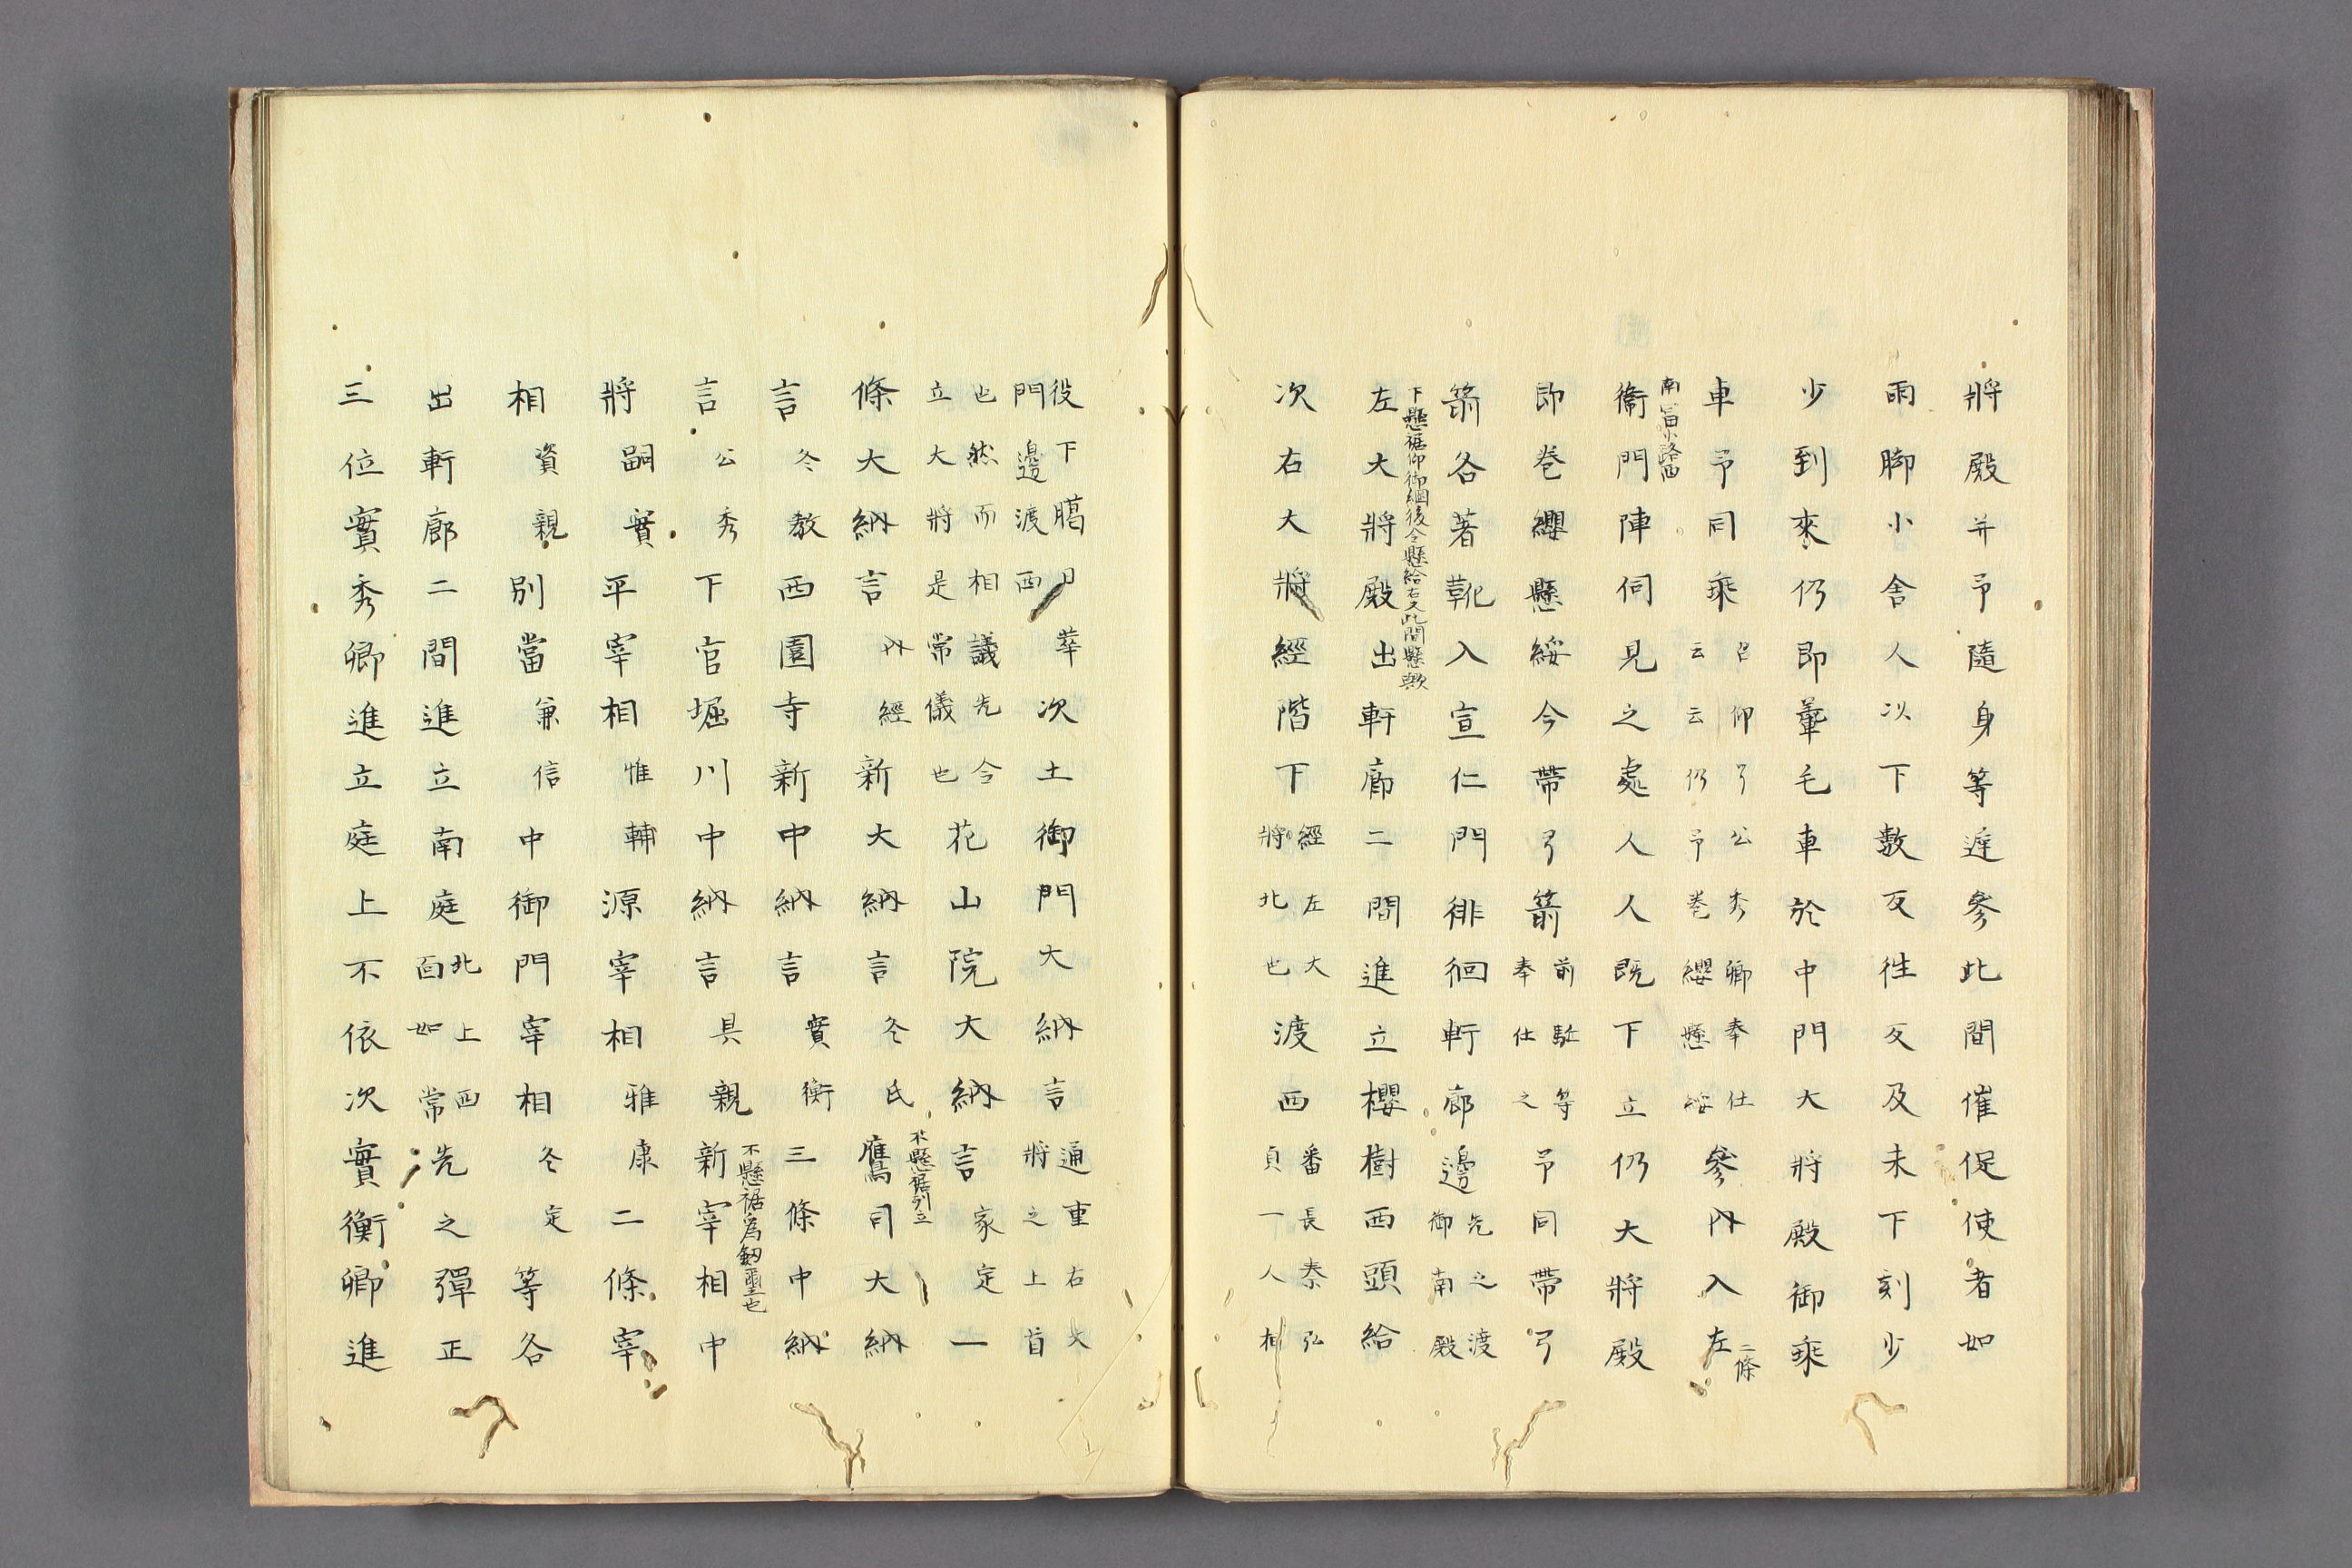 將殿并予隨身等遅參此間催促使者如
雨脚小舎人以下數反徃反及未下刻少
少到來仍即輦毛車於中門大將殿御乘
車予同乘
召仰了公秀卿奉仕
云云仍予巻纓懸緌
參內入左
二條
南冨小路西
衞門陣伺見之處人人既下立仍大將殿
即巻纓懸緌今帶弓箭
前駈等
奉仕之
予同帶弓
箭各著靴入宣仁門徘徊軒廊邊
先之渡
御南殿
下懸裾仰御綱後令懸給右又此間懸歟
左大將殿出軒廊二間進立櫻樹西頭給
次右大將經階下
經左大
將北也
渡西
番長秦弘
貞一人相
役下﨟日華
門邊渡西
次土御門大納言
通重右大
將之上首
也然而相議先令
立大將是常儀也
花山院大納言
家定
一
條大納言
內經
新大納言
冬氏
不懸裾列立
鷹司大納
言
冬教
西園寺新中納言
實衡
三條中納
言
公秀
下官堀川中納言
具親
不懸裾爲劔璽也
新宰相中
將
嗣實
平宰相
惟輔
源宰相
雅康
二條宰
相
資親
別當
兼信
中御門宰相
冬定
等各
出軒廊二間進立南庭
北上西
面如常
先之彈正
三位實秀卿進立庭上不依次實衡卿進